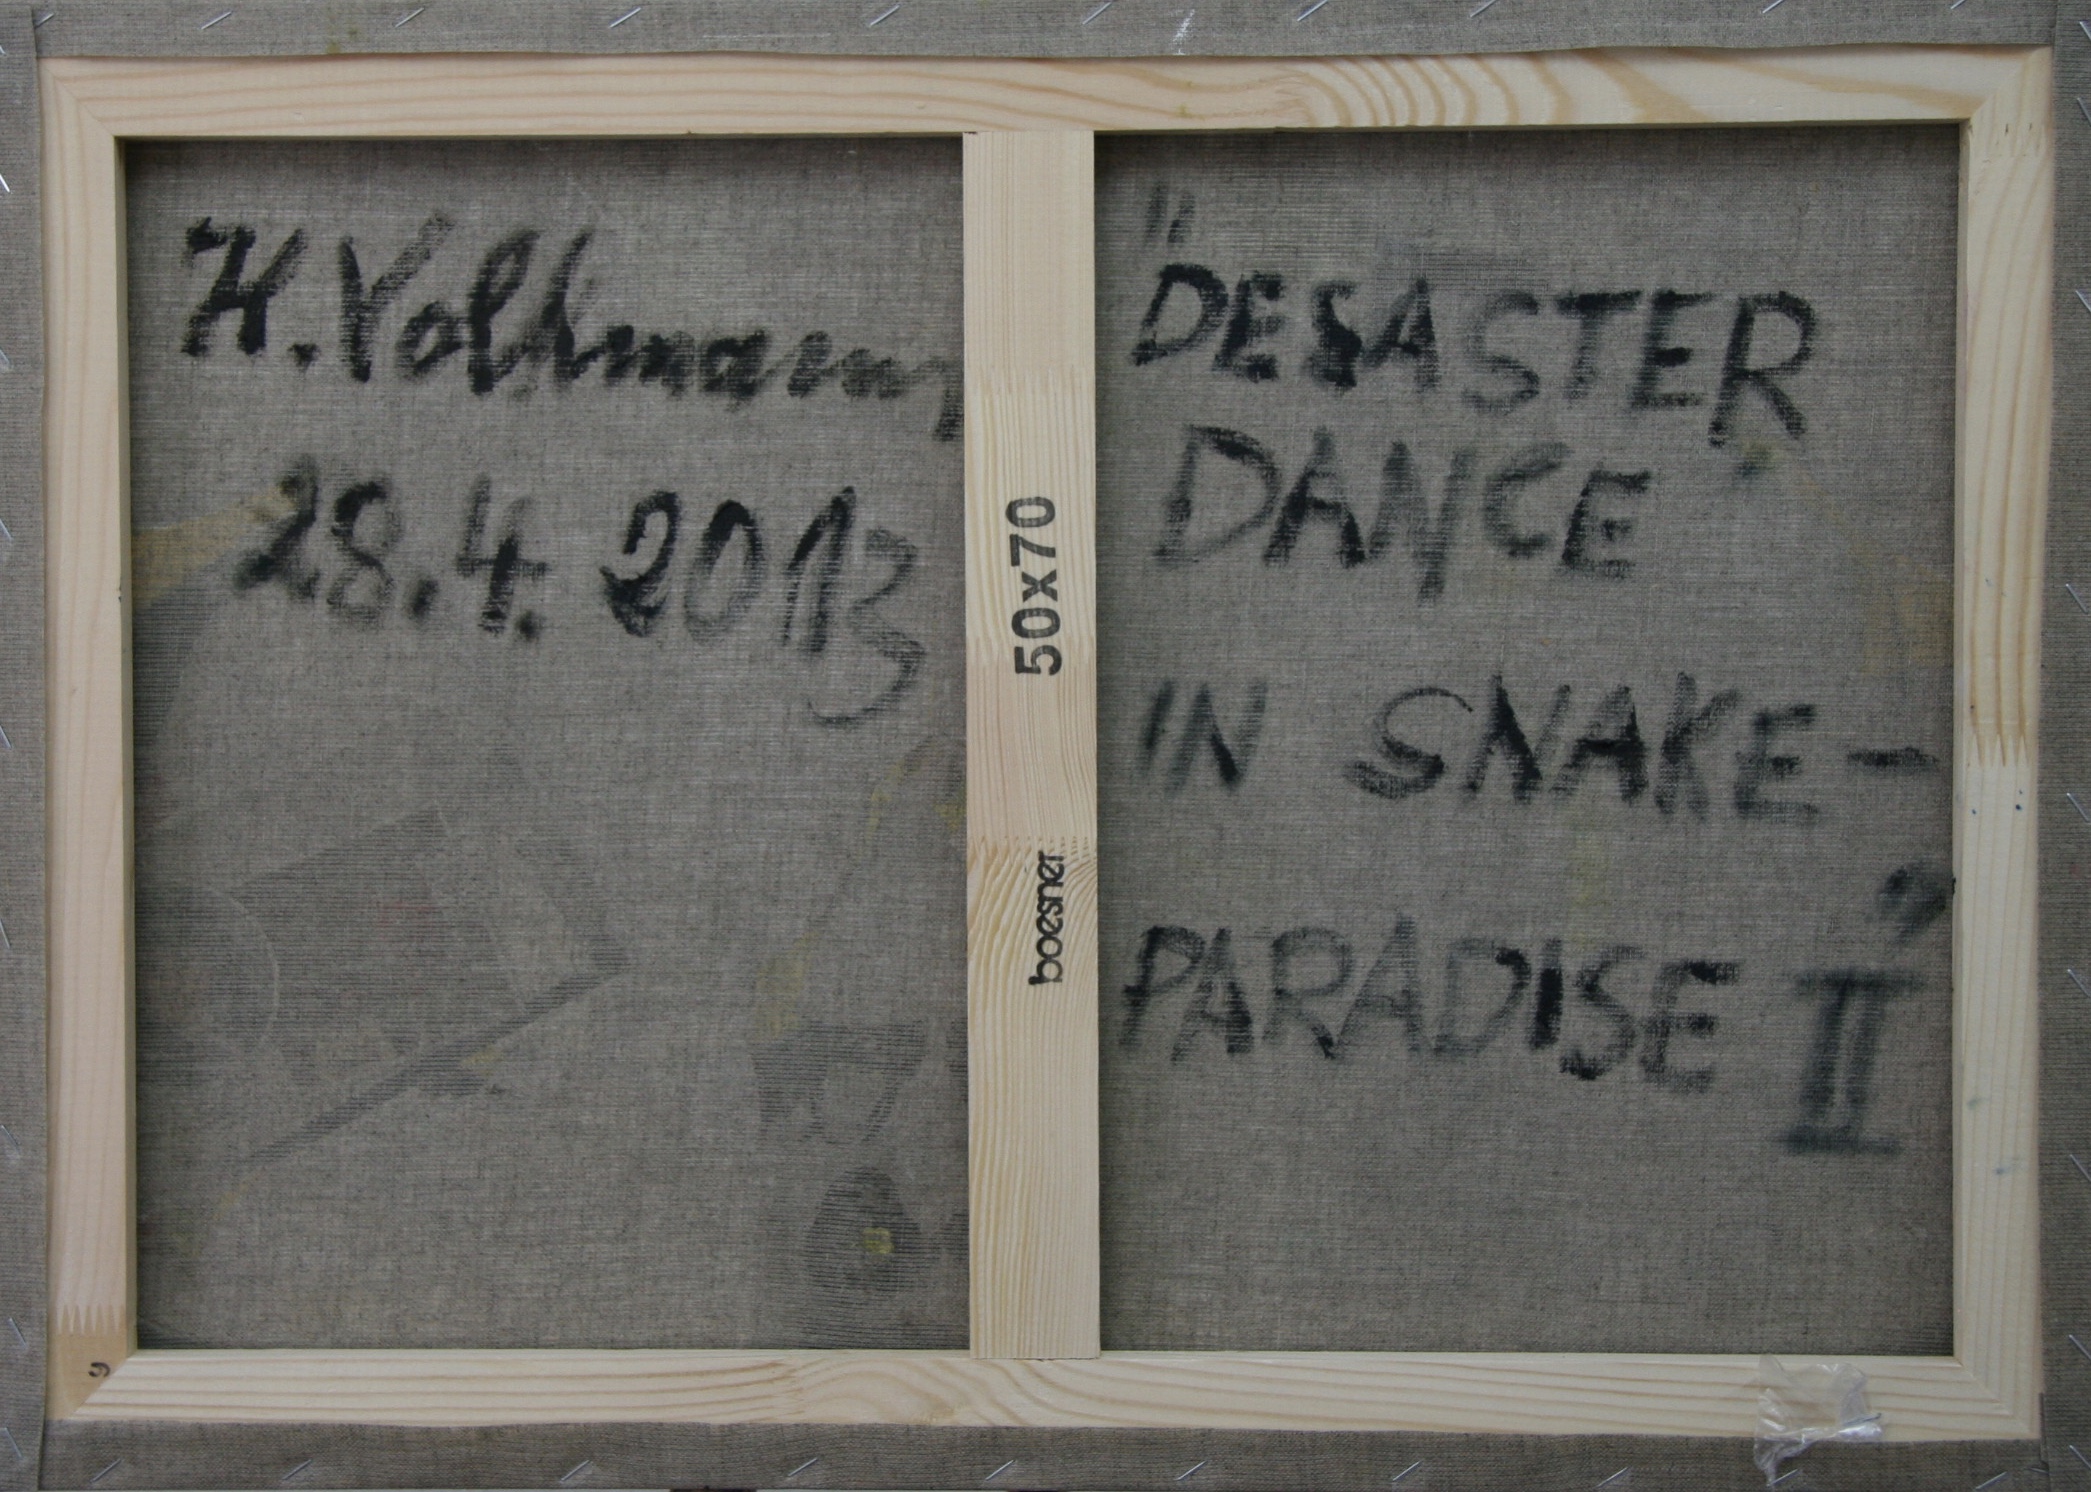 H. Vollmann,
28.4.2013
50x70
boesner
"DESASTER
DANCE
IN SNAKE-
PARADISE II"